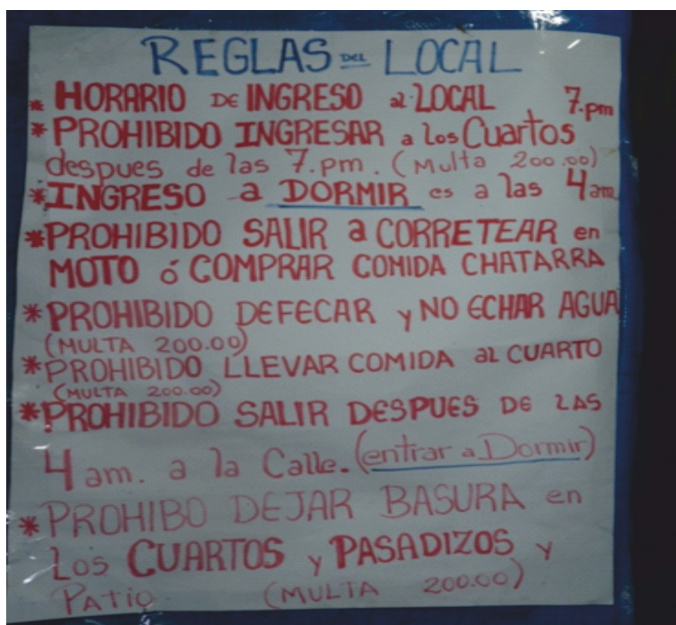 REGLAS DEL LOCAL
* HORARIO DE INGRESO al LOCAL 7.pm
* PROHIBIDO INGRESAR a Los Cuartos
despues de las 7.pm. (Multa 200.00)
* INGRESO a DORMIR es a las 4am
* PROHIBIDO SALIR a CORRETEAR en
MOTO ó COMPRAR COMIDA CHATARRA
* PROHIBIDO DEFECAR y NO ECHAR AGUA
(MULTA 200.00)
* PROHIBIDO LLEVAR COMIDA al CUARTO
(MULTA 200.00)
* PROHIBIDO SALIR DESPUES DE LAS
4am. a la Calle. (entrar a Dormir)
* PROHIBO DEJAR BASURA en
Los CUARTOS y PASADIZOS y
PATiO. (MULTA 200.00)